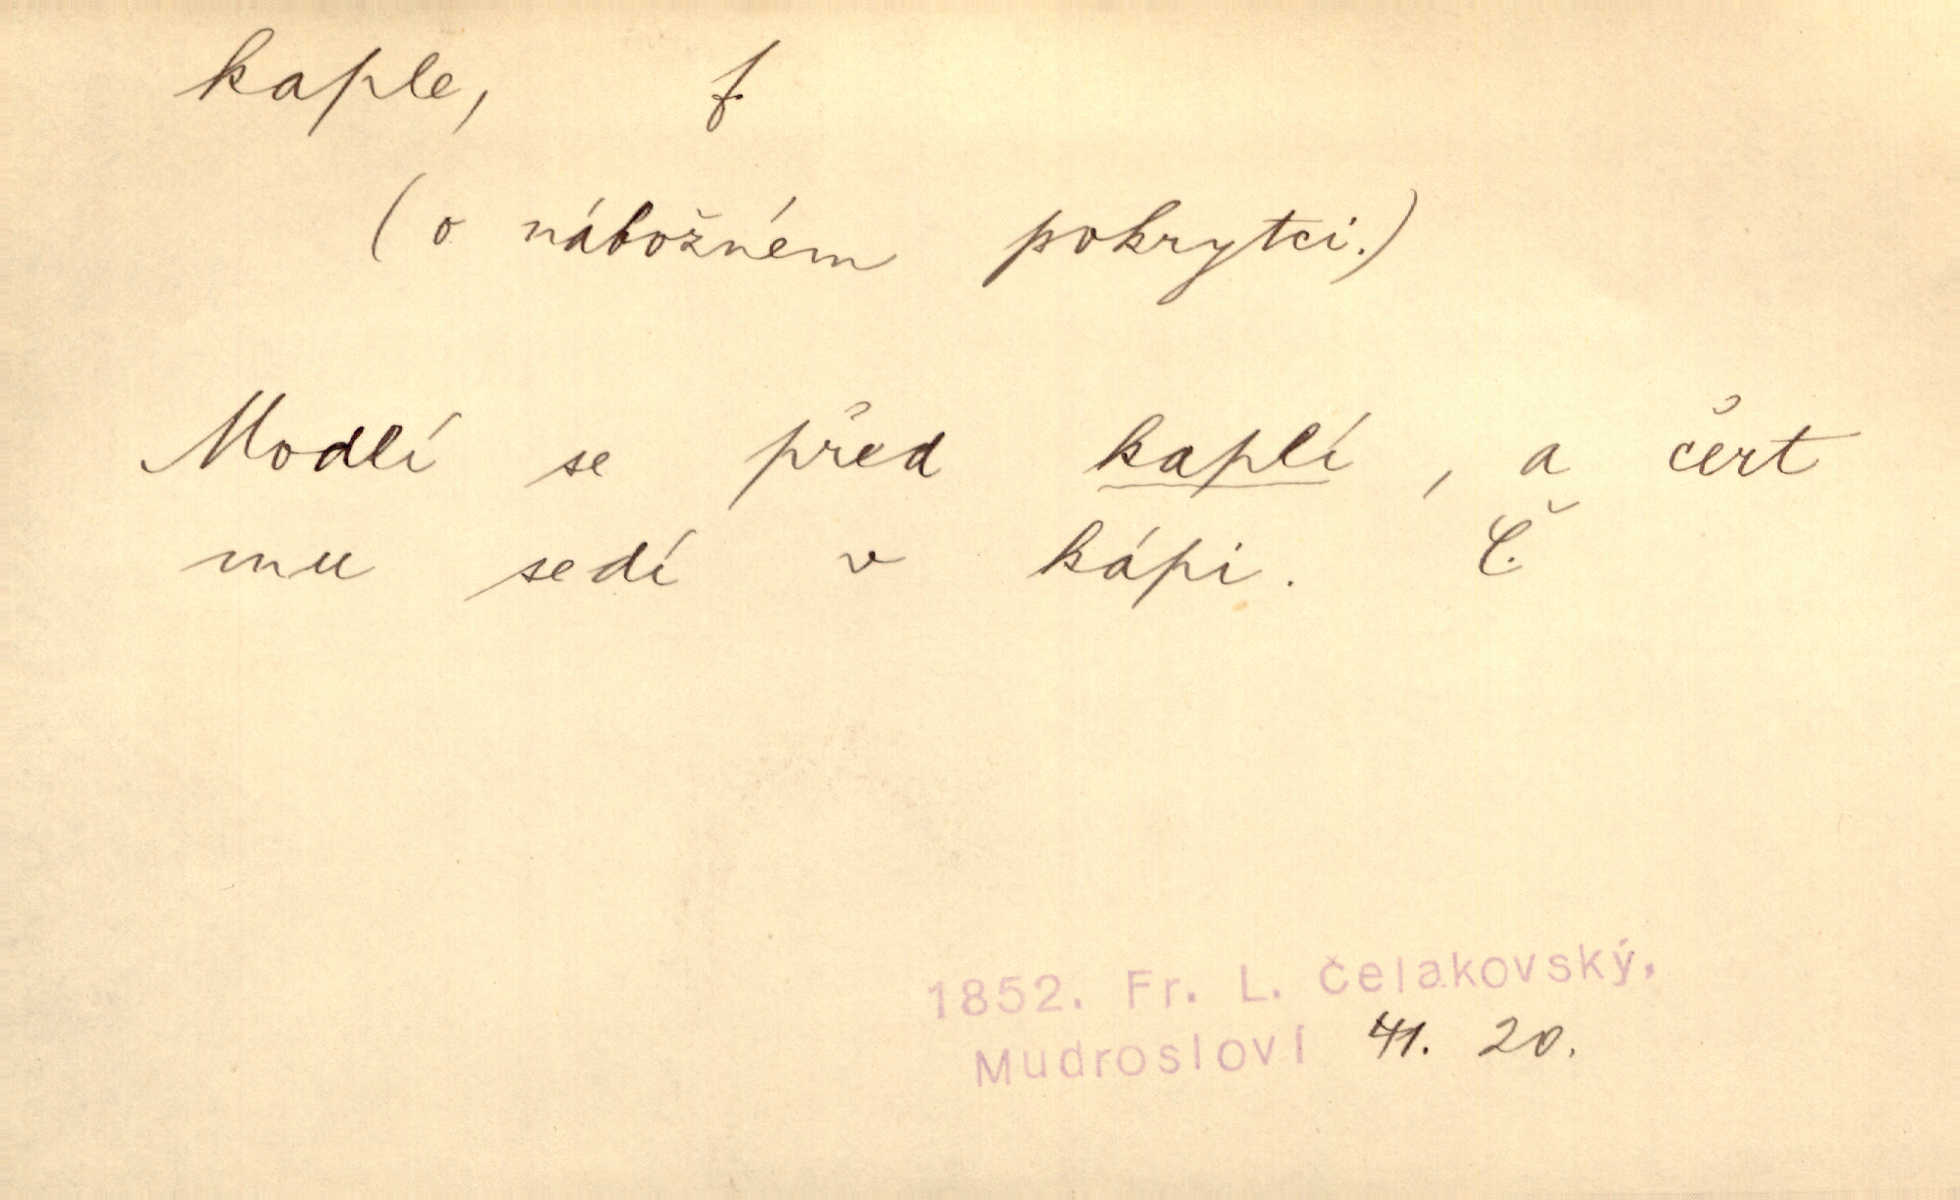 kaple, f.
(o nábožném pokrytci.)
Modlí se před kaplí, a čert
mu sedí v kápi. Č.
1852. Fr. L. Čelakovský,
Mudrosloví 41. 20.